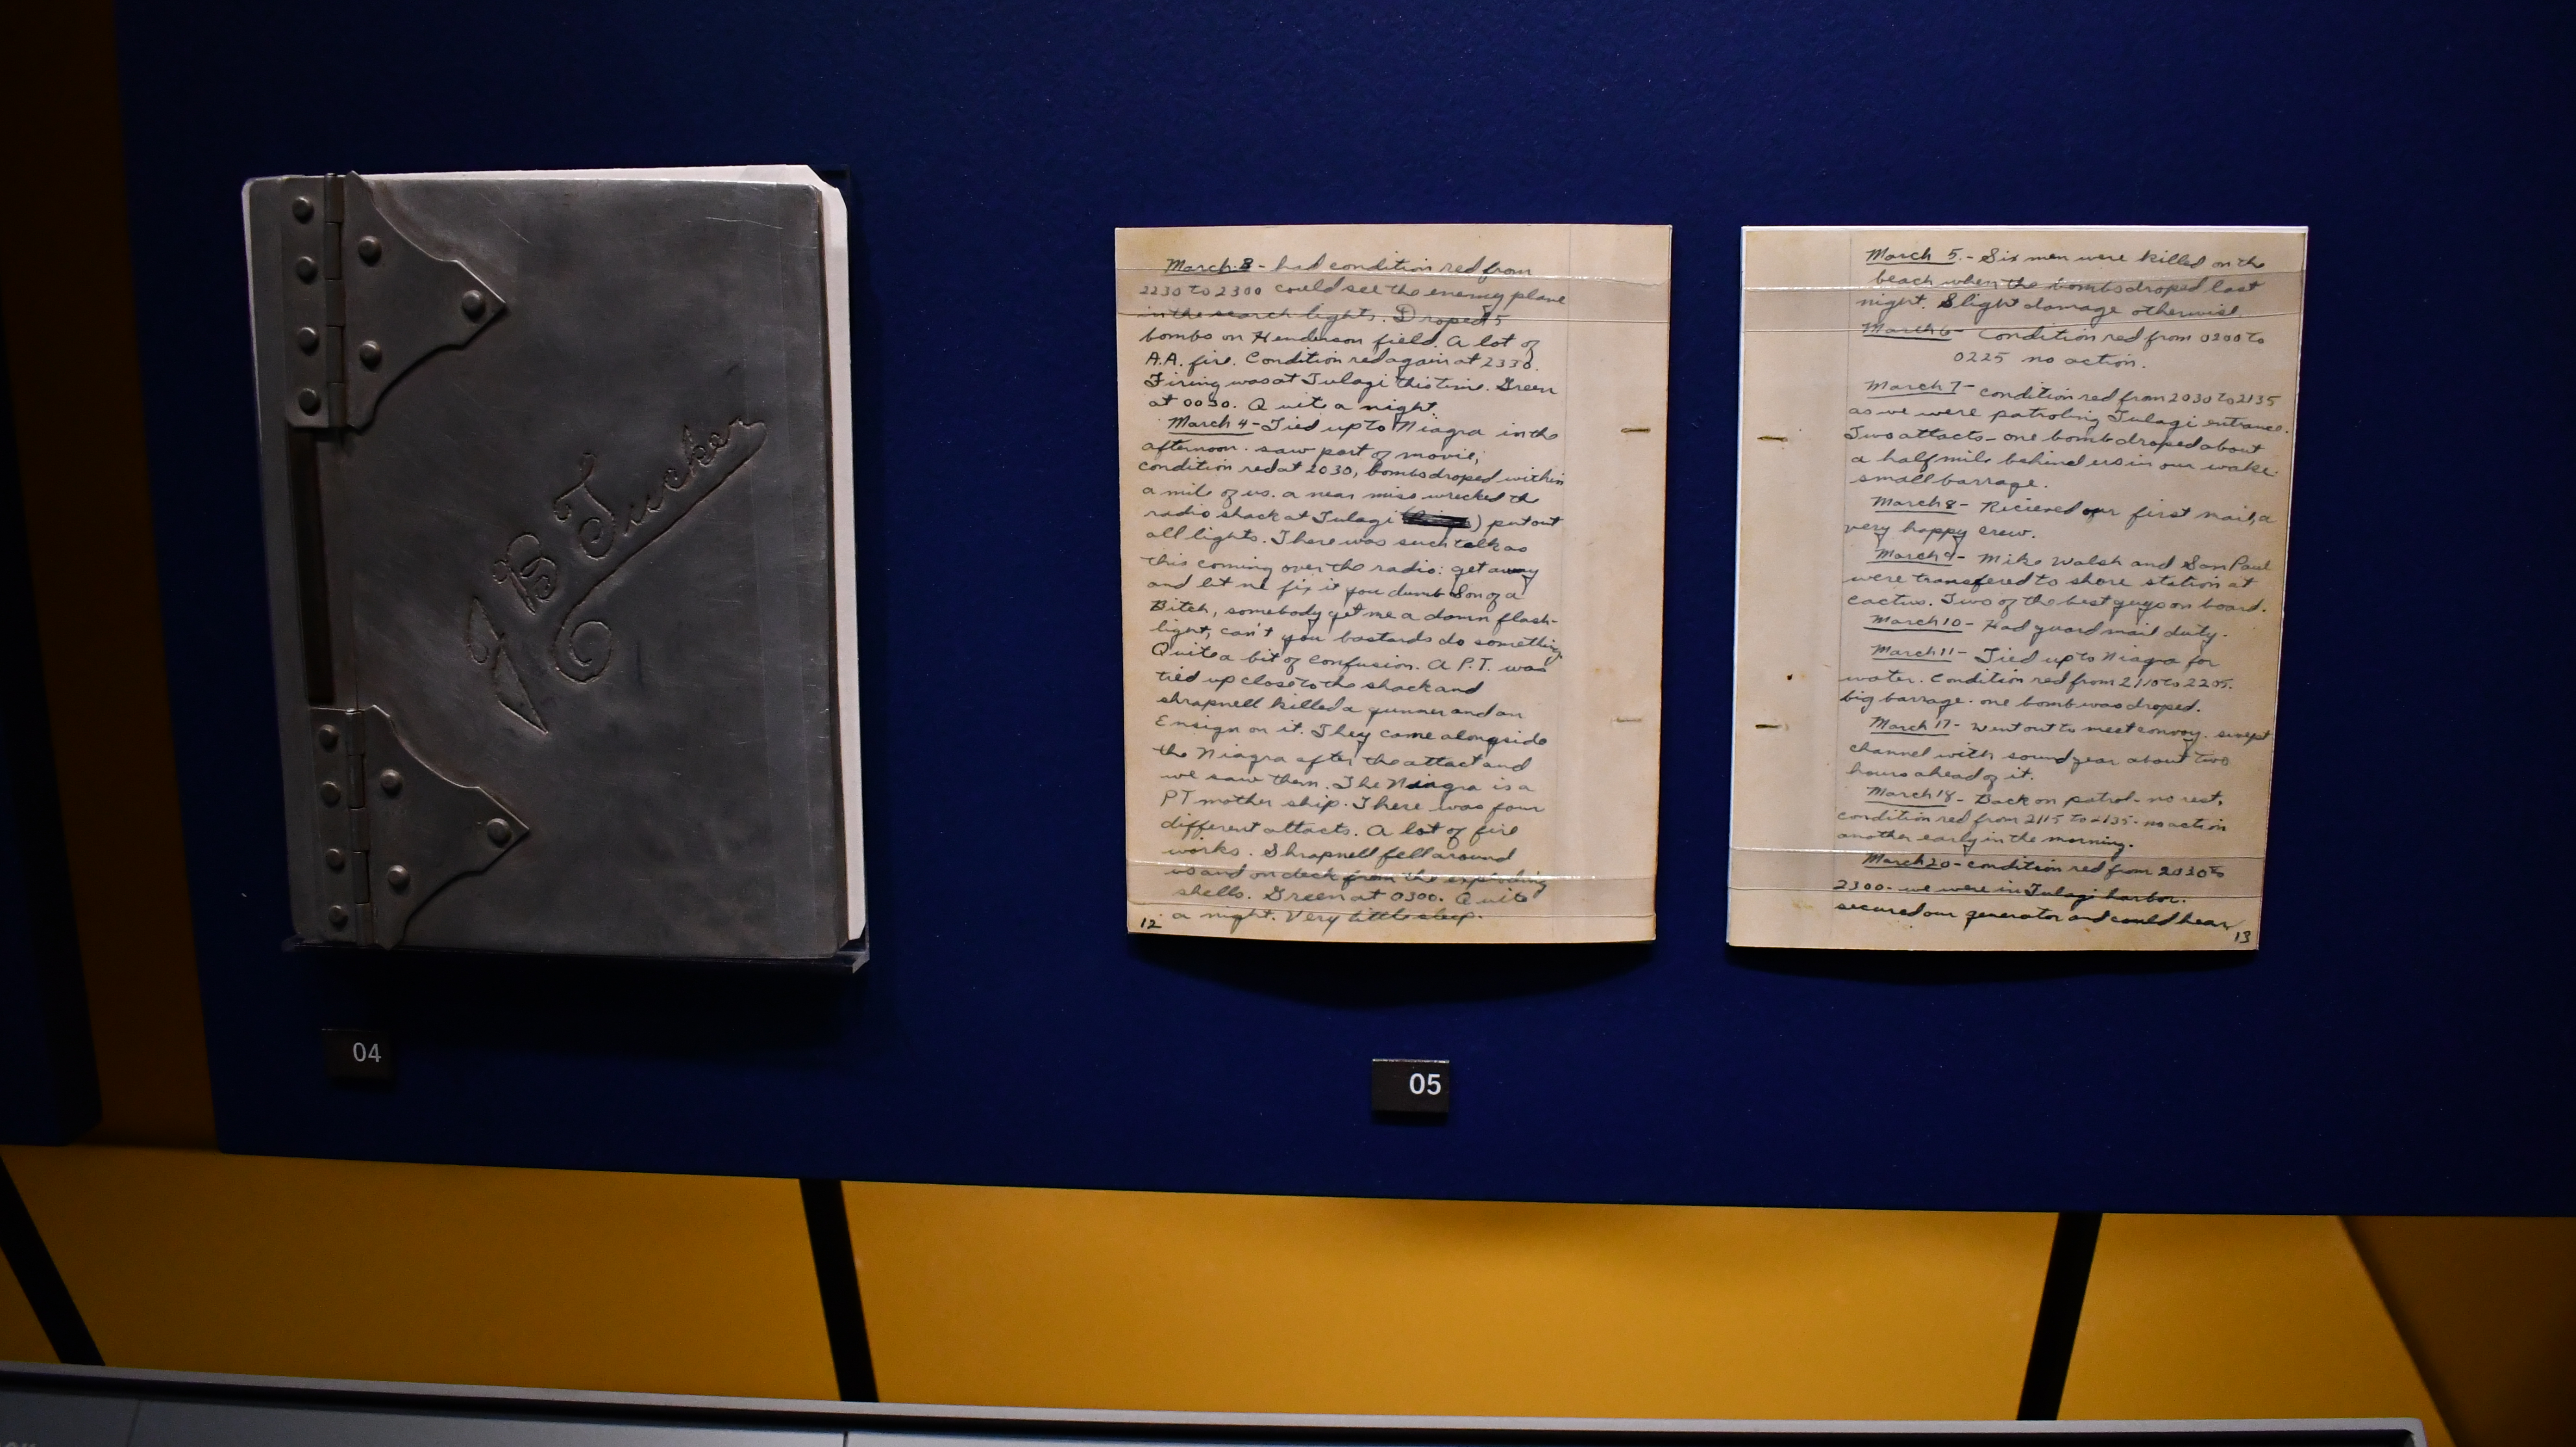 J B Tucker
04
March 3 - had condition red from
2230 to 2300 could see the enemy plane
in the search lights. Droped 5
bombs on Henderson field. A lot of
A.A. fire. Condition red again at 2330.
Firing was at Tulagi this time. Green
at 0030. Quite a night.
March 4 - Tied up to Niagra in the
afternoon. saw part of movie,
condition red at 2030, bombs droped within
a mile of us. a near miss wrecked the
radio shack at Tulagi ( ) put out
all lights. There was such talk as
this coming over the radio: get away
and let me fix it you dumb Son of a
Bitch, somebody get me a damn flash-
light, can't you bastards do something
Quite a bit of confusion. A P.T. was
tied up close to the shack and
shrapnell killed a gunner and an
Ensign on it. They came alongside
the Niagra after the attact and
we saw them. The Niagra is a
PT mother ship. There was four
different attacts. A lot of fire
works. Shrapnell fell around
us and on deck from the exploding
shells. Green at 0300. Quite
a night. Very little sleep.
12
March 5. - Six men were killed on the
beach when the bombs droped last
night. Slight damage otherwise.
March 6 - Condition red from 0200 to
0225 no action.
March 7 - condition red from 2030 to 2135
as we were patroling Tulagi entrance.
Two attacts - one bomb droped about
a half mile behind us in our wake.
small barrage.
March 8 - Recieved our first mail, a
very happy crew.
March 9 - Mike Walsh and San Paul
were transfered to shore station at
cactus. Two of the best guys on board.
March 10 - Had guard mail duty.
March 11 - Tied up to Niagra for
water. Condition red from 2110 to 2205.
big barrage. one bomb was droped.
March 17 - Went out to meet convoy. swept
channel with sound gear about two
hours ahead of it.
March 18 - Back on patrol - no rest,
condition red from 2115 to 2135 - no action
another early in the morning.
March 20 - condition red from 2030 to
2300 - we were in Tulagi harbor.
secured our generator and could hear
13
05